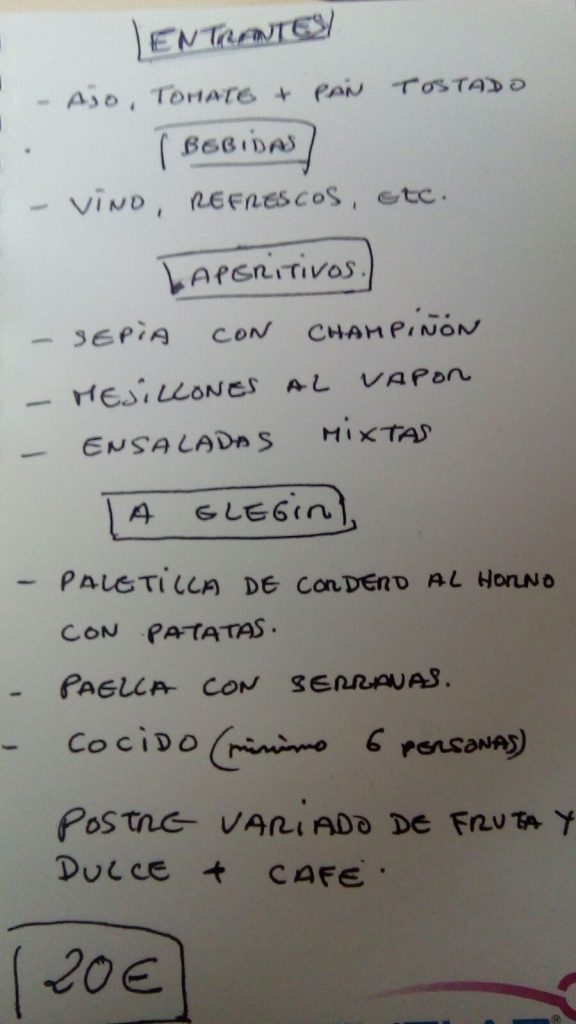 ENTRANTES
- AJO, TOMATE + PAN TOSTADO
BEBIDAS
- VINO, REFRESCOS, ETC.
APERITIVOS.
- SEPIA CON CHAMPIÑÓN
- MEJILLONES AL VAPOR
- ENSALADAS MIXTAS
A ELEGIR
- PALETILLA DE CORDERO AL HORNO
CON PATATAS.
- PAELLA CON SERRANAS.
- COCIDO (mínimo 6 PERSONAS)
POSTRE VARIADO DE FRUTA Y
DULCE + CAFE.
20€